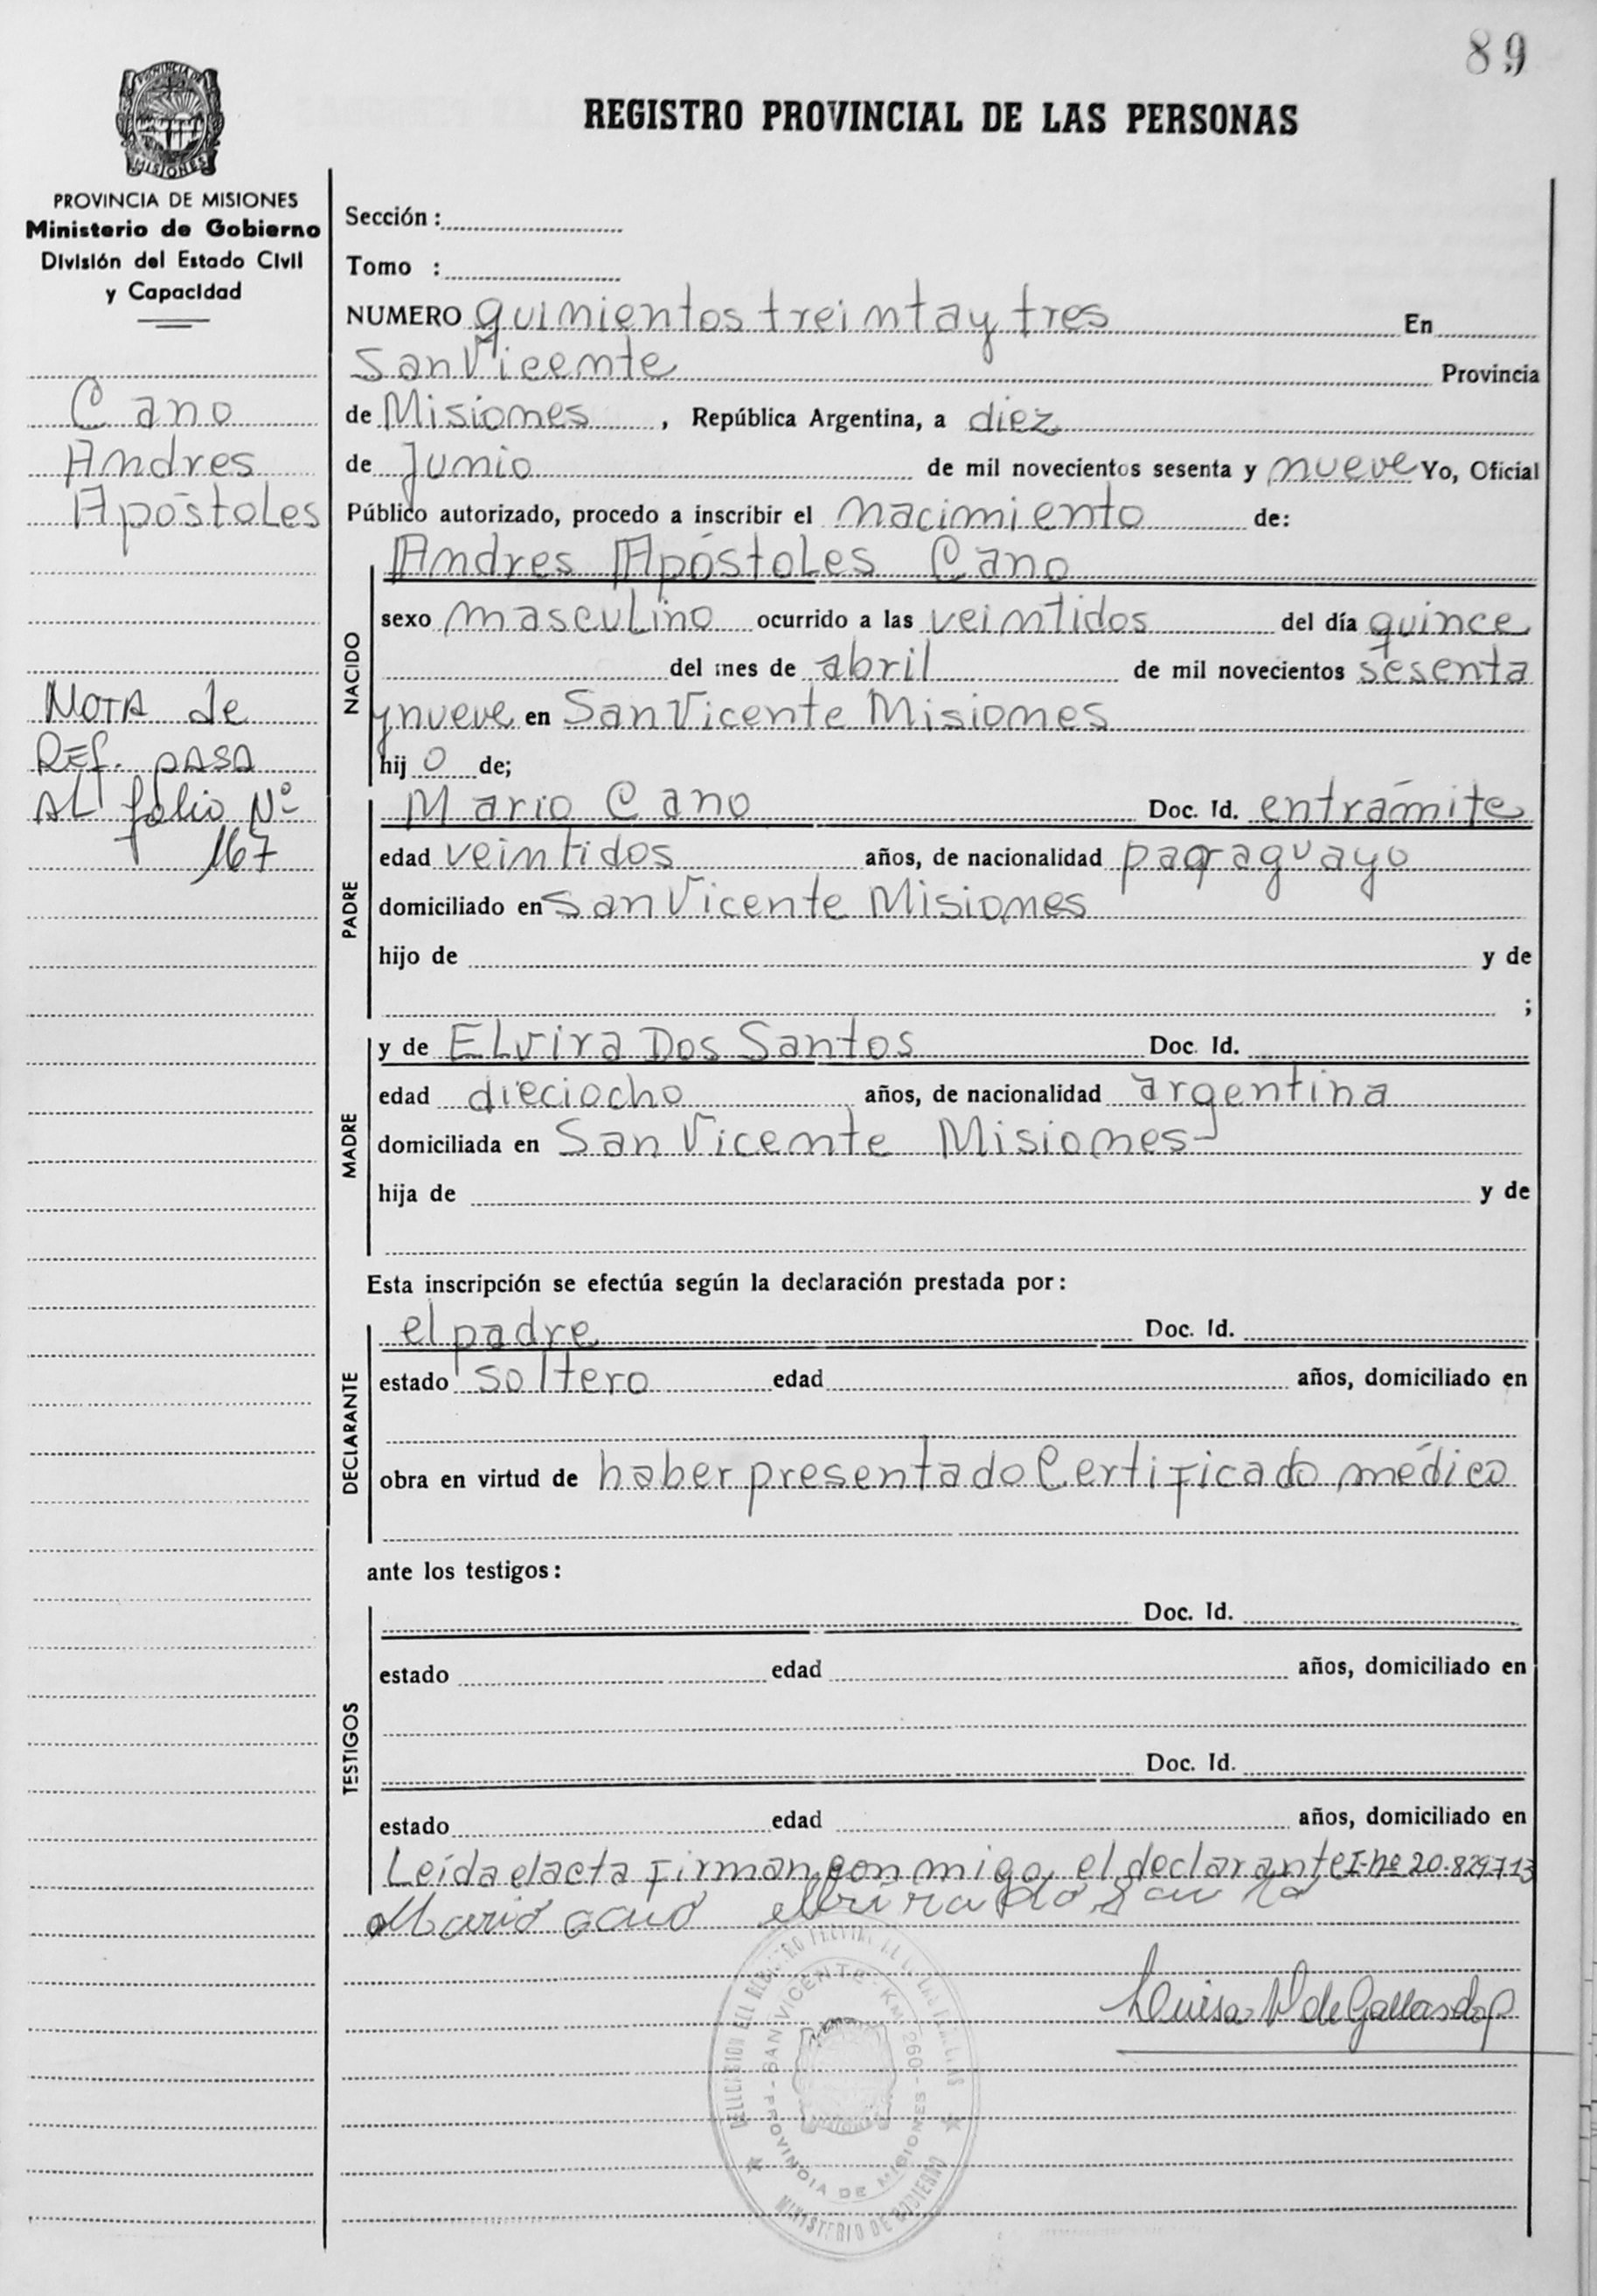 89
PROVINCIA DE MISIONES
MISIONES
REGISTRO PROVINCIAL DE LAS PERSONAS
PROVINCIA DE MISIONES
Ministerio de Gobierno
División del Estado Civil
y Capacidad
Cano
Andres
Apóstoles
Nota de
Ref. pasa
al folio Nº
167
Sección :
Tomo :
NUMERO quinientos treinta y tres En
San Vicente Provincia
de Misiones , República Argentina, a diez
de Junio de mil novecientos sesenta y nueve Yo, Oficial
Público autorizado, procedo a inscribir el nacimiento de:
NACIDO
Andres Apóstoles Cano
sexo masculino ocurrido a las veintidos del día quince
del mes de abril de mil novecientos sesenta
y nueve en San Vicente Misiones
hij o de;
PADRE
Mario Cano Doc. Id. en trámite
edad veintidos años, de nacionalidad paaraguayo
domiciliado en San Vicente Misiones
hijo de y de
;
MADRE
y de Elvira Dos Santos Doc. Id.
edad dieciocho años, de nacionalidad argentina
domiciliada en San Vicente Misiones
hija de y de
Esta inscripción se efectúa según la declaración prestada por :
DECLARANTE
el padre Doc. Id.
estado soltero edad años, domiciliado en
obra en virtud de haber presentado Certificado médico
ante los testigos :
TESTIGOS
Doc. Id.
estado edad años, domiciliado en
Doc. Id.
estado edad años, domiciliado en
Leída el acta firman conmigo el declarante I-nº 20.829713
Mario cano elvira do san to
Luisa de Gallardo
SAN VICENTE - KM. 260 - PROVINCIA DE MISIONES
MINISTERIO DE GOBIERNO